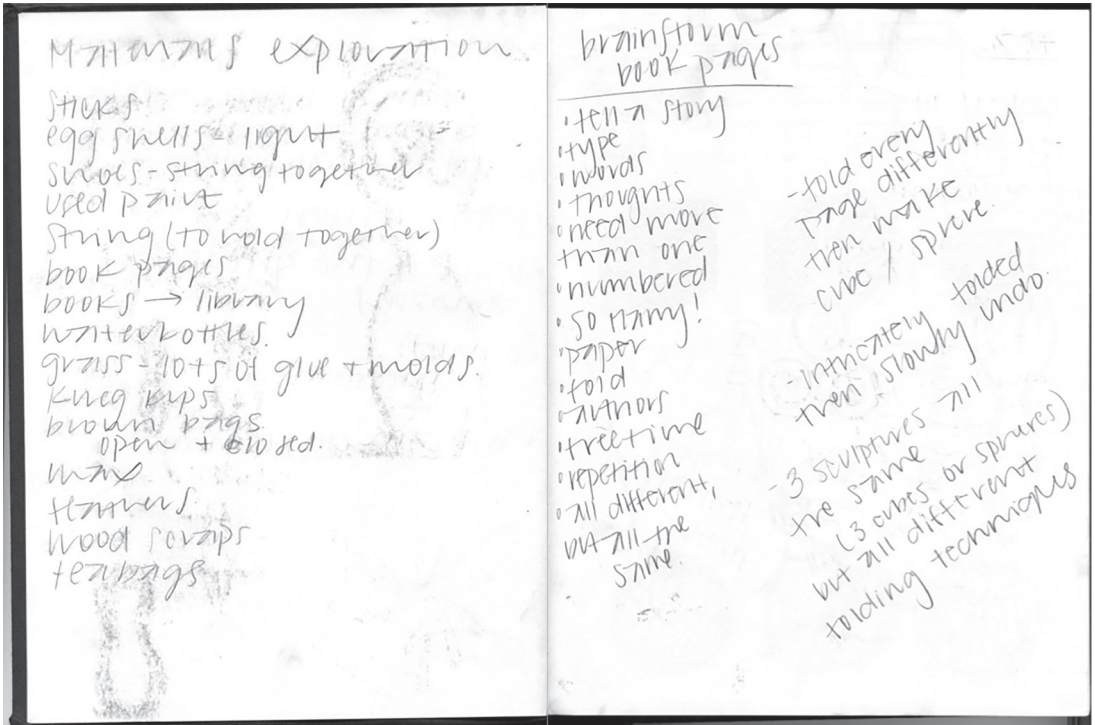 Materials exploration
sticks
egg shells - light
shoes - string together
used paint
string (to hold together)
book pages
books → library
waterbottles.
grass - lots of glue + molds.
kureg kups
brown bags
open + closed.
wax
feathers
wood scraps
teabags
brainstorm
book pages
• tell a story
• type
• words
• thoughts
• need more
than one
• numbered
• so many!
• paper
• fold
• authors
• freetime
• repetition
• all different,
but all the
same.
- fold every
page differently
then make
cube / sphere.
- intricately folded
then slowly undo.
- 3 sculptures all
the same
(3 cubes or spheres)
but all different
folding techniques